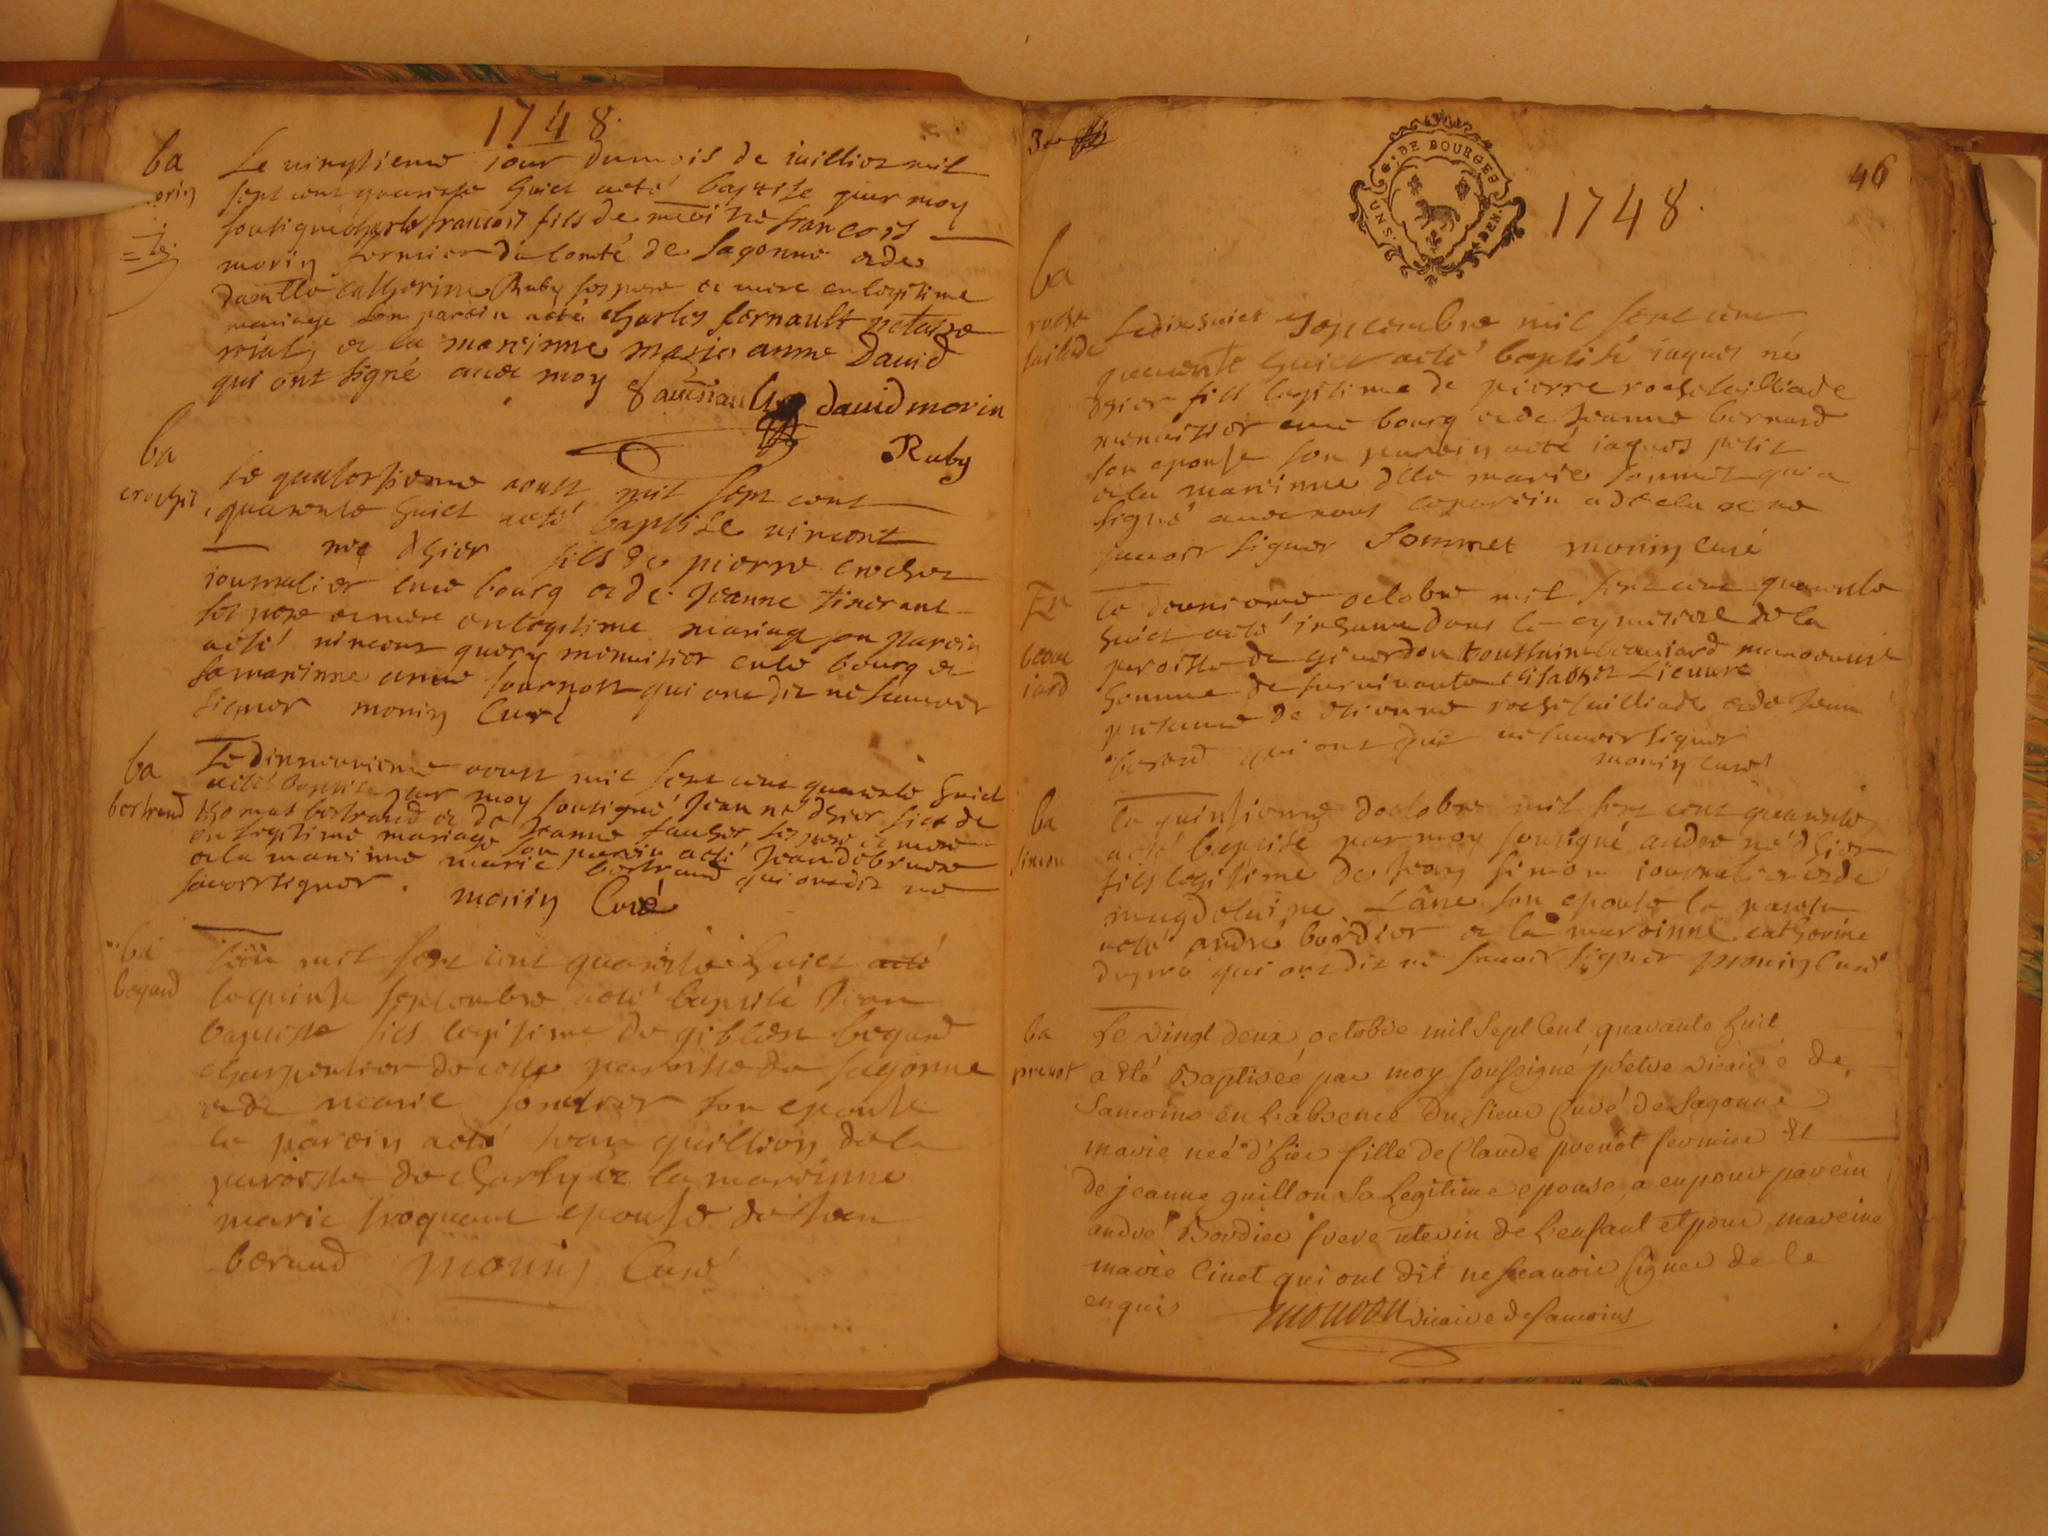 1748.
ba
morin
Le vingtieme jour du mois de juilliot mil
sept cent quarante huict aeté baptise par moy
soussigné charle francois fils de maitre francois
morin fermier du comté de Sagonne et de
damlle catherine Ruby ses pere et mere en legitime
mariage son parein aeté charles fernault notaire
roial, et la mareinne marie anne David
qui ont signé avec moy
david morin
Ruby
ba
crochet
Le quatorsieme aoust mil sept cent
quarante huict aeté baptise vincent
né d'hier fils de pierre crochet
journalier en ce bourg et de Jeanne
ses pere et mere en legitime mariage son parein
aeté vincent query menuisier en ce bourg et
sa mareinne anne qui ont dit ne scavoir
signer monin Curé
ba
bertrand
Le dixneuvieme aoust mil sept cent quarante huict
aeté baptise par moy soussigné Jean né d'hier fils de
thomas bertrand et de Jeanne faucher ses pere et mere
en legitime mariage son parein aeté Jean debruere
et la mareinne marie bertrand qui ont dit ne
scavoir signer. monin Curé
ba
begaud
L'an mil sept cent quarante huict aeté
le quinse septembre aeté baptisé Jean
baptiste fils legitime de gilbert begaud
charpentier de cette paroisse de Sagonne
et de marie son epouse
le parein aeté Jean quillion de la
paroisse de charly et la mareinne
marie troquant epouse de Jean
beraud monin Curé
46
G. DE BOURGES
1748.
ba
roche
tailiade
Le dix huict Septembre mil sept cent
quarante huict aeté baptisé jaques né
d'hier fils legitime de pierre roche tailliade
menuisier en ce bourg et de Jeanne bernard
son epouse son parein aeté jaques petit
et la mareinne dlle marie sommet qui a
signé avec nous le parein a declaré ne
scavoir signer Sommet monin curé
En
beau
iard
Le deusieme octobre mil sept cent quarante
huict aeté inhumé dans le cymetiere de la
paroisse de givardon toussaint beauiard manoeuvre
homme de survivante elisabet Lieuvre
presance de etienne roche tailliade et de Jean
berard qui ont dit ne scavoir signer
monin curé
ba
simon
Le quinsieme d'octobre mil sept cent quarante
aeté baptisé par moy sousigné andre né d'hier
fils legitime de Jean simon journalier et de
magdelaine Lâne son epouse le parein
aeté andré bordier et la mareinne catherine
dupre qui ont dit ne scavoir signer monin Curé
ba
prevot
Le vingt deux octobre mil sept Cent quarante huit
a été Baptiseé par moy soussigné prêtre vicaire de
Sancoins en L'absence du sieur Curé de Sagonne
marie neé d'hier fille de Claude prevôt fermier et
de jeanne guillon Sa Legitime epouse, a eu pour parein
andré Bordier frere uterin de L'enfant et pour mareine
marie Cinet qui ont dit ne scavoir signer de ce
enquis monvon vicaire de Sancoins